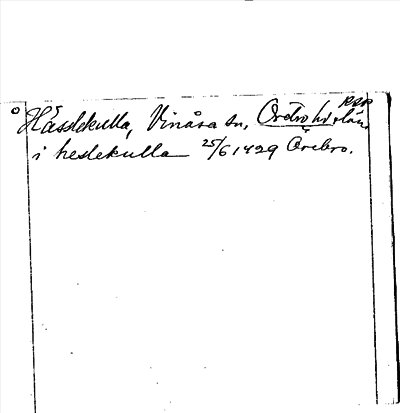 RAp
° Hässlekulla, Vinåsa sn, Örebro hd o län.
i heslekulla 25/6 1429 Örebro.